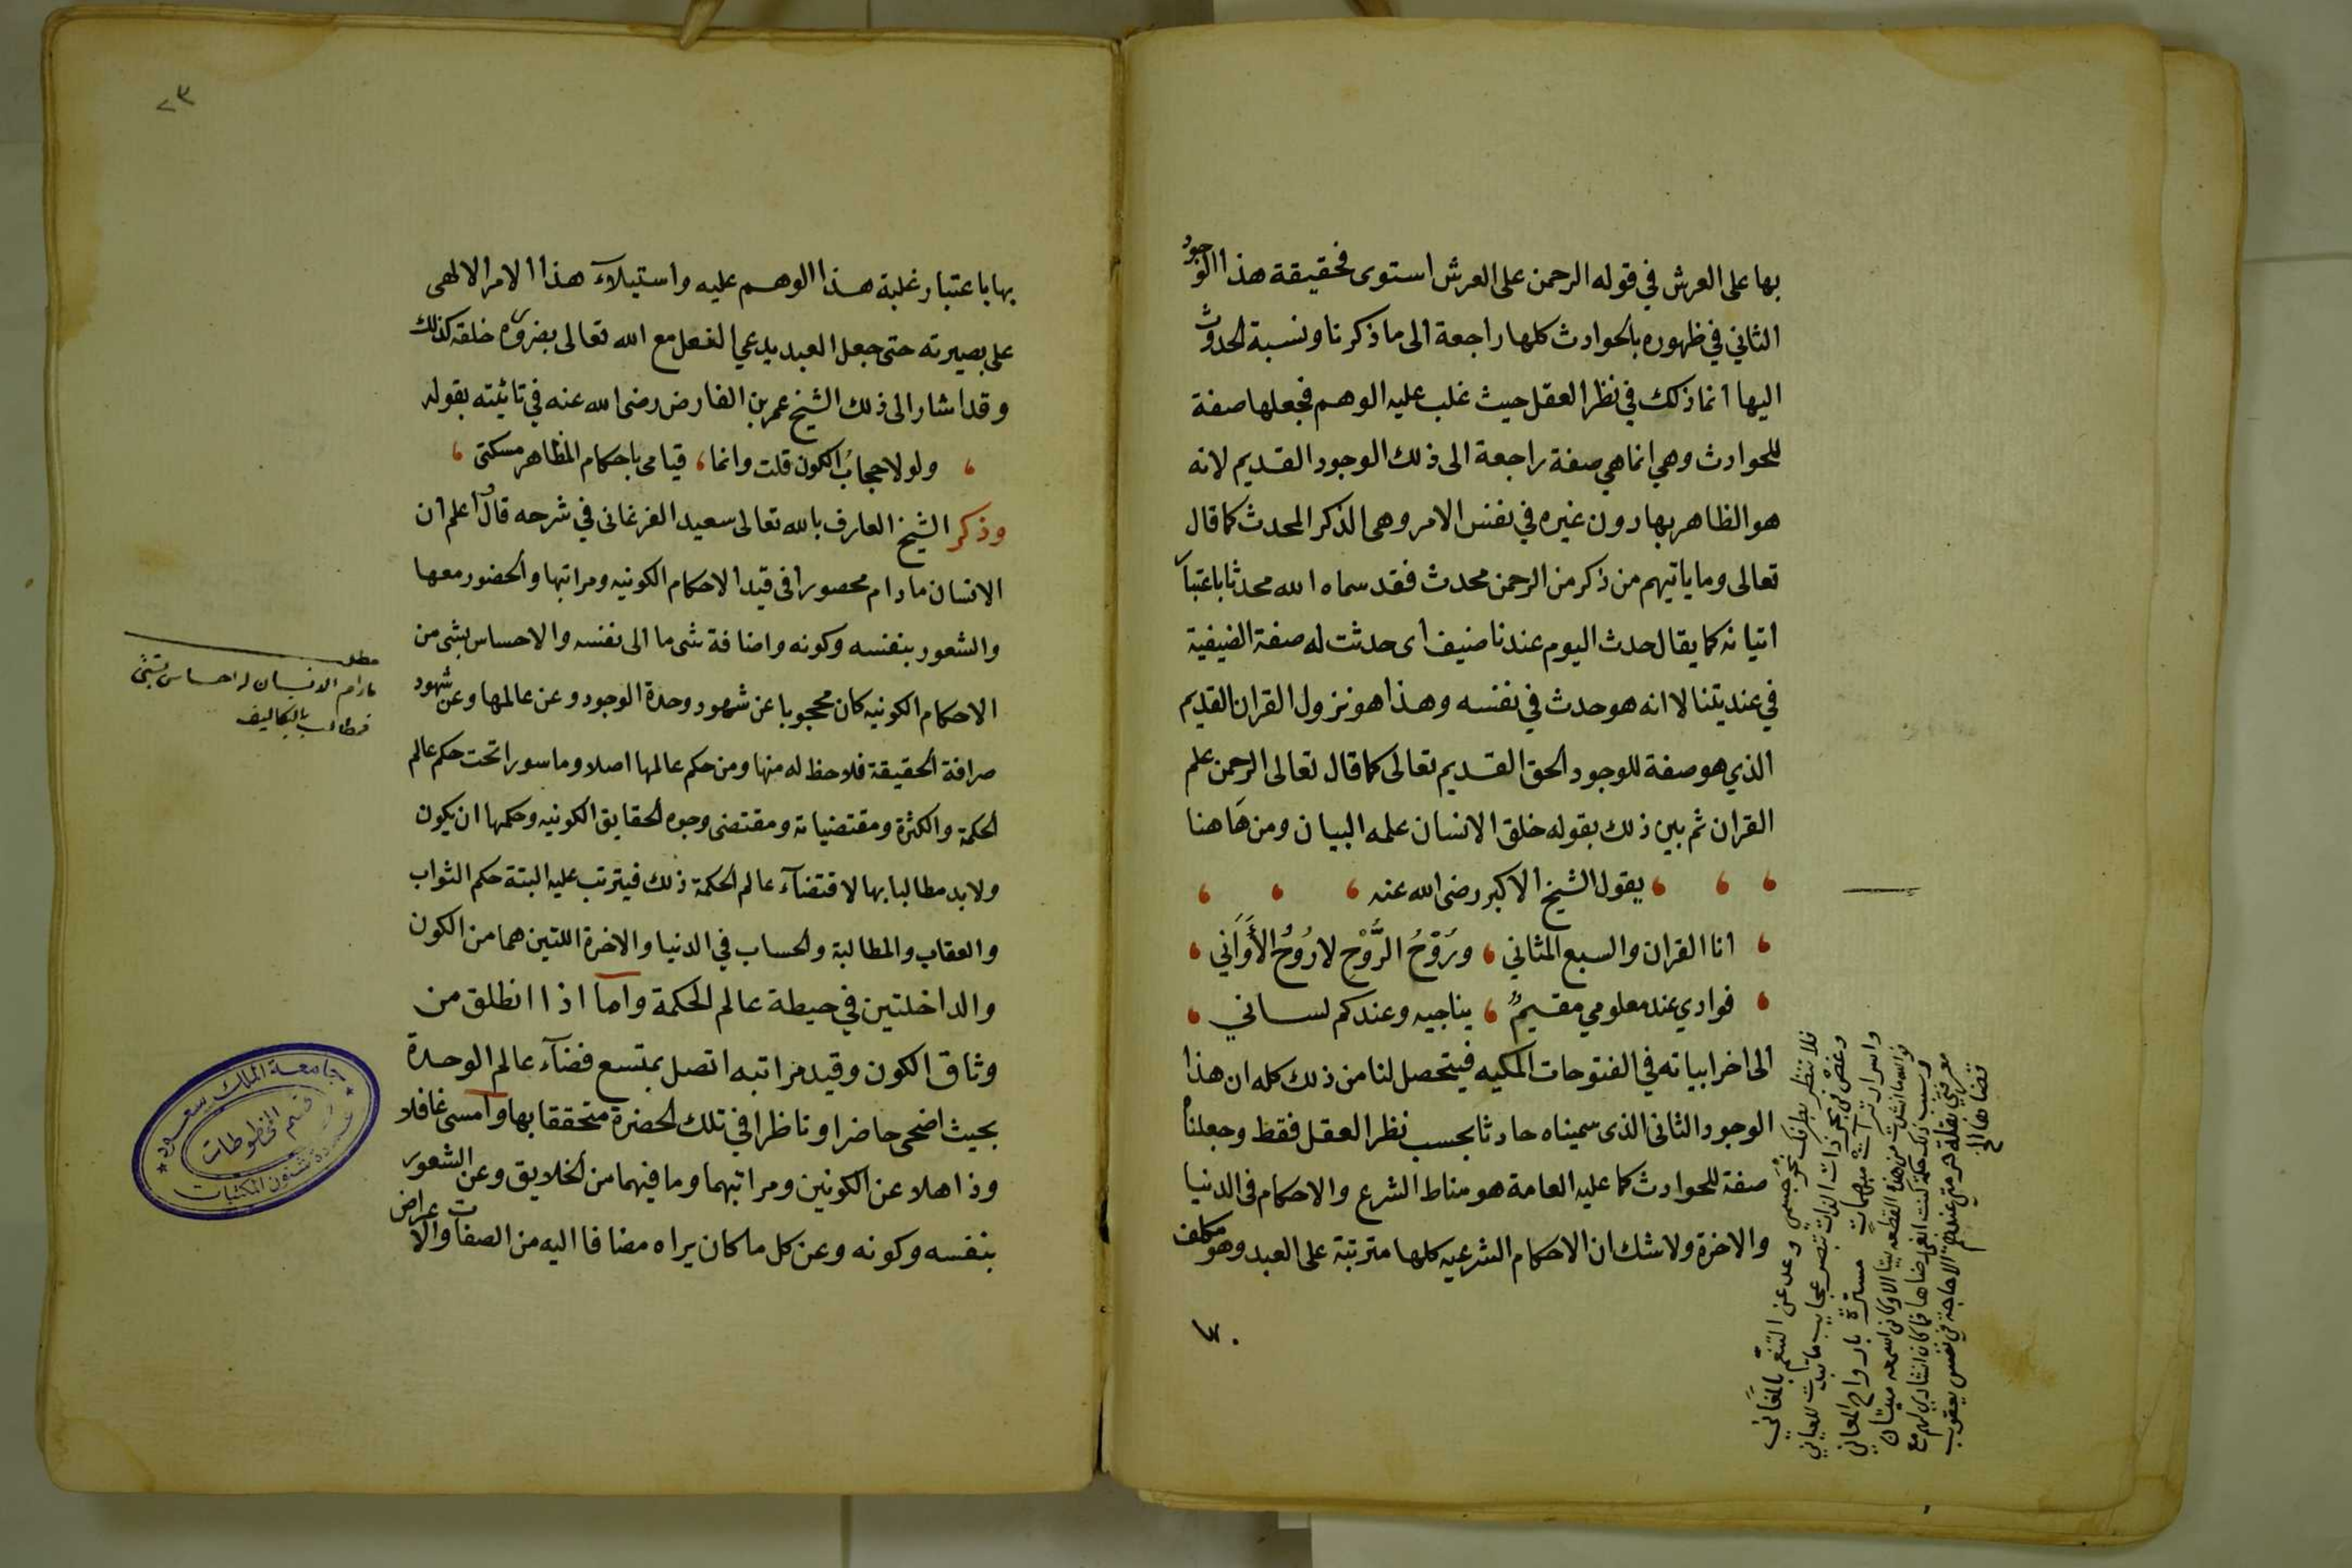 بها على العرش في قوله الرحمن على العرش استوى فحقيقة هذا الوجود
الثاني في ظهوره بالحوادث كلها راجعة الى ما ذكرنا ونسبة الحدوث
اليها انما ذلك في نظر العقل حيث غلب عليه الوهم فجعلها صفة
للحوادث وهي انما هي صفة راجعة الى ذلك الوجود القديم لانه
هو الظاهر بها دون غيره في نفس الامر وهى الذكر المحدث كما قال
تعالى وما ياتيهم من ذكر من الرحمن محدث فقد سماه الله محدثا باعتبار
اتيانه كما يقال حدث اليوم عندنا ضيف اى حدثت له صفة الضيفية
في عنديتنا لا انه هو حدث في نفسه وهذا هو نزول القران القديم
الذي هو صفة للوجود الحق القديم تعالى كما قال تعالى الرحمن علم
القران ثم بين ذلك بقوله خلق الانسان علمه البيان ومن هاهنا
يقول الشيخ الاكبر رضى الله عنه
انا القران والسبع المثاني ، ورُوْحُ الرُّوْحِ لا رُوْحُ الأَوَانِي
فوادي عند معلومي مقيمٌ ، يناجيه وعندكم لساني
الى اخر ابياته في الفتوحات المكيه فيتحصل لنا من ذلك كله ان هذا
الوجود الثانى الذى سميناه حادثا بحسب نظر العقل فقط وجعلناه
صفة للحوادث كما عليه العامة هو مناط الشرع والاحكام فى الدنيا
والاخرة ولا شك ان الاحكام الشرعيه كلها مترتبة على العبد وهو مكلف
فلا تنظر بطرفك نحو جسمي وعد عن التنعم بالمغاني
وغص في بحر ذات الذات تبصر عجايب ما تبدت للعيان
واسرار تراءت مبهمات مسترة بارواح المعاني
٢٣
بها باعتبار غلبة هذا الوهم عليه واستيلآء هذا الامر الالهى
على بصيرته حتى جعل العبد يدعي الفعل مع الله تعالى بضرورة خلقه كذلك
وقد اشار الى ذلك الشيخ عمر بن الفارض رضى الله عنه في تائيته بقوله
، ولولا حجابُ الكون قلت وانما ، قيامى باحكام المظاهر مسكتى ،
وذكر الشيخ العارف بالله تعالى سعيد الفرغانى في شرحه قال اعلم ان
الانسان ما دام محصورا فى قيد الاحكام الكونيه ومراتبها والحضور معها
والشعور بنفسه وكونه واضافة شى ما الى نفسه والاحساس بشى من
الاحكام الكونيه كان محجوبا عن شهود وحدة الوجود وعن عالمها وعن شهود
صرافة الحقيقة فلا حظ له منها ومن حكم عالمها اصلا وماسورا تحت حكم عالم
الحكمة والكثرة ومقتضياته ومقتضى وجوه الحقايق الكونيه وحكمها ان يكون
ولابد مطالبا بها لاقتضآء عالم الحكمة ذلك فيترتب عليه البتة حكم الثواب
والعقاب والمطالبة والحساب في الدنيا والاخرة اللتين هما من الكون
والداخلتين في حيطة عالم الحكمة واما اذا انطلق من
وثاق الكون وقيد مراتبه اتصل بمتسع فضآء عالم الوحدة
بحيث اضحى حاضرا وناظرا في تلك الحضرة متحققا بها وامسى غافلا
وذاهلا عن الكونين ومراتبهما وما فيهما من الخلايق وعن الشعور
بنفسه وكونه وعن كل ما كان يراه مضافا اليه من الصفات والاعراض
مطلب
مادام الانسان له احساس بشئ
فمطالب بالتكاليف
جامعة الملك سعود
قسم المخطوطات
عمادة شئون المكتبات